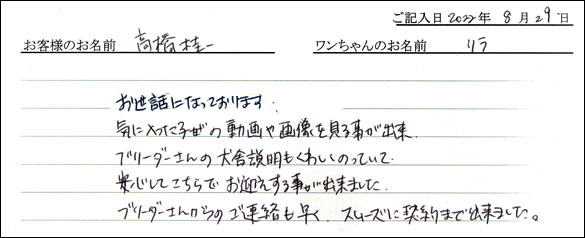 ご記入日 2022年 8月29日
お客様のお名前 高橋桂一 ワンちゃんのお名前 リラ
お世話になっております。
気に入った子犬の動画や画像を見る事が出来、
ブリーダーさんの犬舎説明もくわしくのっていて、
安心してこちらでお迎えする事が出来ました。
ブリーダーさんからのご連絡も早く、スムーズに契約まで出来ました。